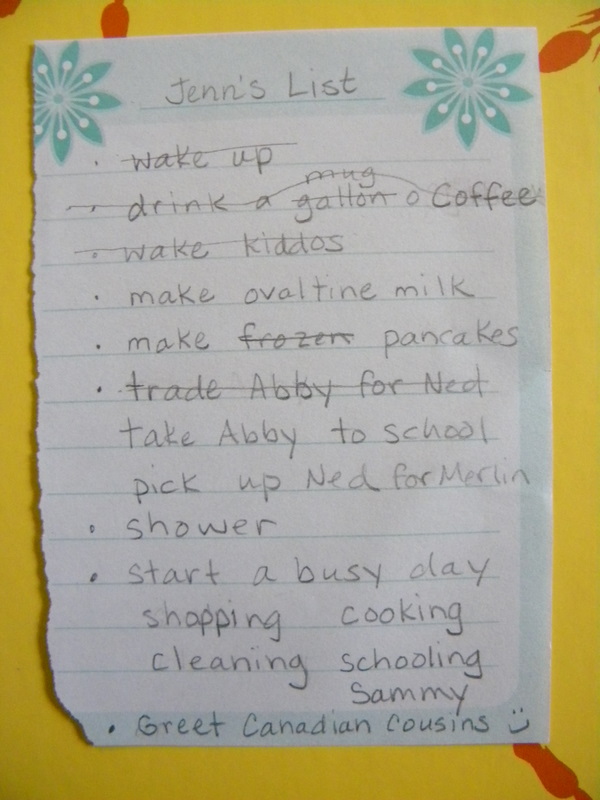 Jenn's List
· wake up
mug
· drink a gallon o Coffee
· wake kiddos
· make ovaltine milk
· make frozen pancakes
· trade Abby for Ned
take Abby to school
pick up Ned for Merlin
· shower
· start a busy day
shopping cooking
cleaning schooling
Sammy
· Greet Canadian Cousins :)